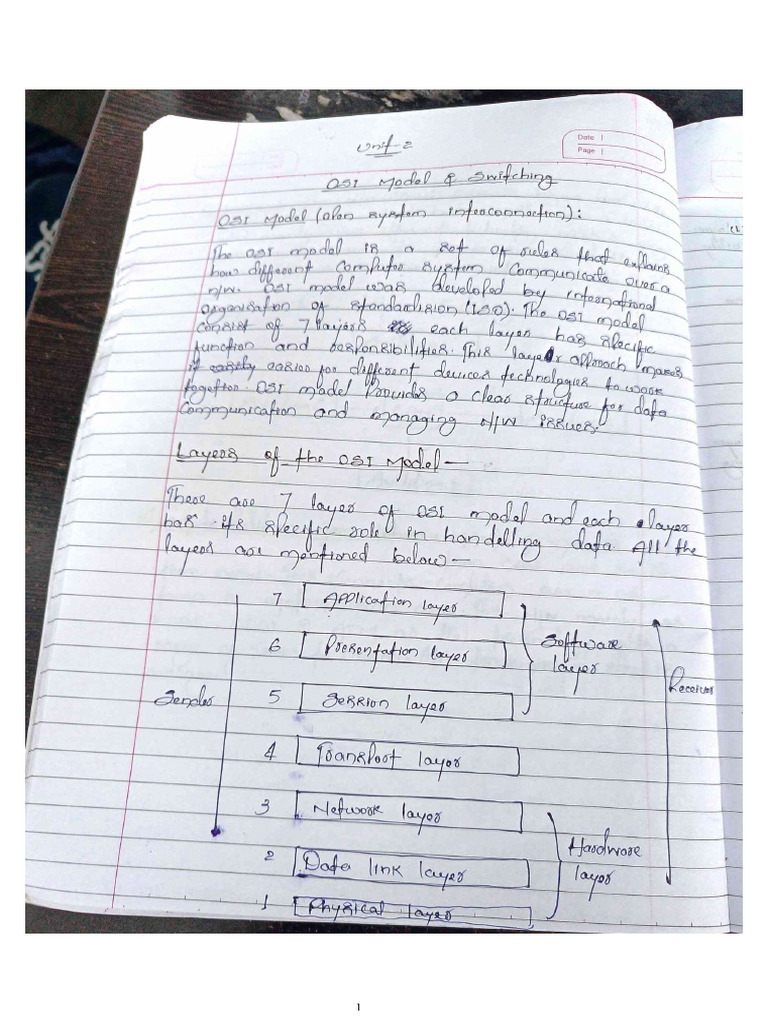 Date
Page
Unit-2
OSI Model & Switching
OSI Model (open system interconnection):
The OSI model is a set of rules that explains
how different computer system communicate over a
n/w. OSI model was developed by international
organisation of standardision (ISO). The OSI model
consist of 7 layers each layer has specific
function and responsibilities. This layer approach makes
it easily easion for different devices technologies to work
together. OSI model provides a clear structure for data
communication and managing N/W issues.
Layers of the OSI Model —
There are 7 layer of OSI model and each layer
has its specific role in handelling data All the
layers are mentioned below —
7 Application layer
6 Presentation layer
Software
layer
Receiver
Sender
5 Session layer
4 Transport layer
3 Network layer
Hardware
layer
2 Data link layer
1 Physical layer
1